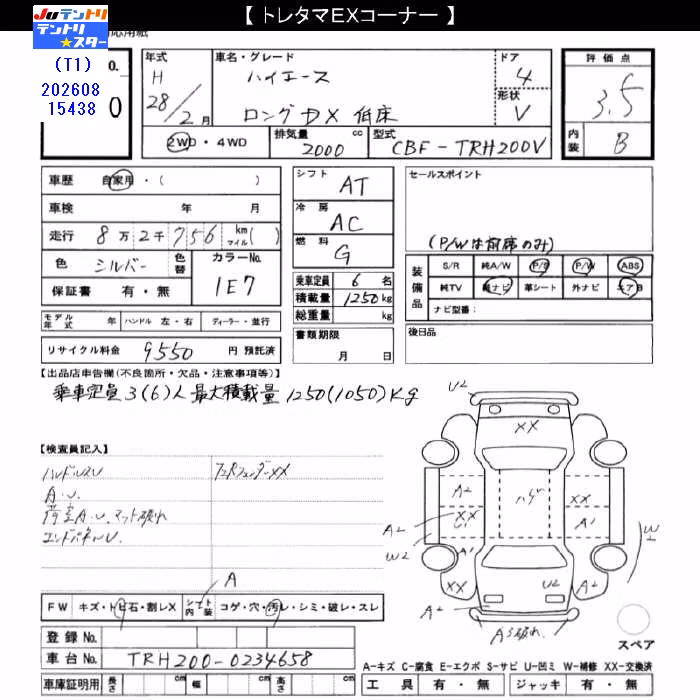 【 トレタマEXコーナー 】
JUテントリ
テントリ
★スター
応用紙
(T1)
202608
15438
O.
0
年式
H
28/2月
車名・グレード
ハイエース
ロングDX 低床
ドア
4
形状
V
評価点
3.5
内装
B
2WD・4WD
排気量 cc
2000
型式
CBF-TRH200V
車歴 自家用・( )
車検 年 月
走行 8万2千756 km マイル( )
色 シルバー 色替 カラーNo. 1E7
保証書 有・無
シフト AT
冷房 AC
燃料 G
乗車定員 6 名
積載量 1250 kg
総重量 kg
書類期限
月 日
セールスポイント
(P/Wは前席のみ)
装備品
S/R 純A/W P/S P/W ABS
純TV 純ナビ 革シート 外ナビ エアB
ナビ型番:
後日品
モデル年式 年 ハンドル 左・右 ディーラー・並行
リサイクル料金 9550 円 預託済
【出品店申告欄(不良箇所・欠品・注意事項等)】
乗車定員3(6)人 最大積載量1250(1050)Kg
【検査員記入】
ハンドルスレU
A.U.
荷室A.U.マット破れ
エンドパネルU.
フェンダーXX
A
FW キズ・トビ石・割レX シート内装 コゲ・穴・汚レ・シミ・破レ・スレ
登録No.
車台No. TRH200-0234658
車庫証明用 長さ cm 幅 cm 高さ cm
U2
XX
A2
ハゲ
XX
XX
A2
U1
A1
W2
A1
W2
XX
U2
A2
A2
A3破れ
スペア
A-キズ C-腐食 E-エクボ S-サビ U-凹ミ W-補修 XX-交換済
工具 有・無 ジャッキ 有・無